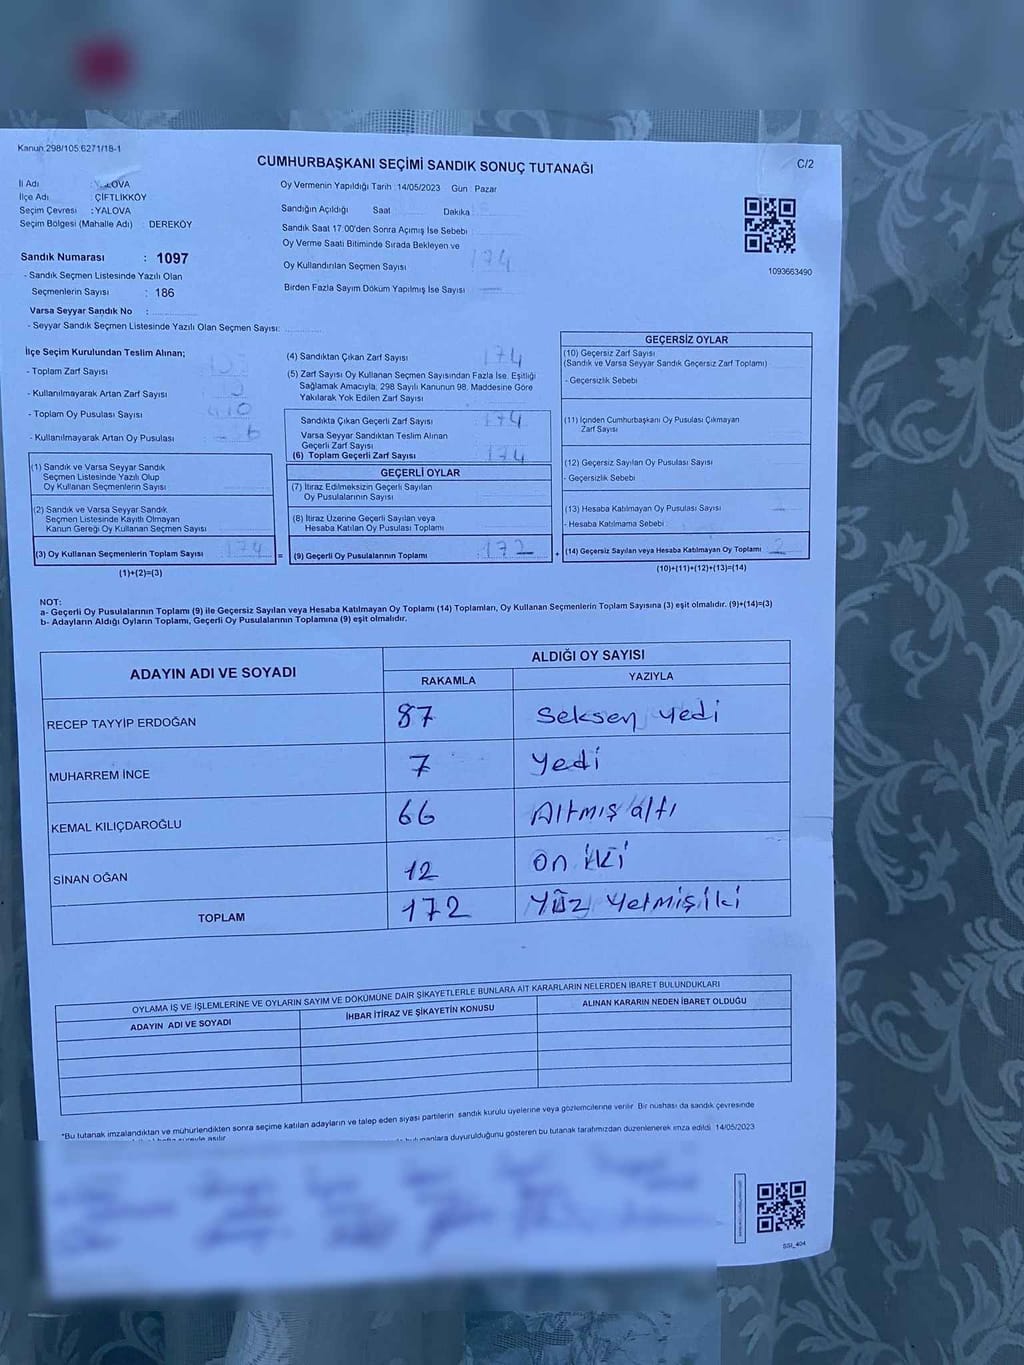 Kanun 298/105 6271/18-1
CUMHURBAŞKANI SEÇİMİ SANDIK SONUÇ TUTANAĞI
C/2
İl Adı : YALOVA
İlçe Adı : ÇİFTLİKKÖY
Seçim Çevresi : YALOVA
Seçim Bölgesi (Mahalle Adı) : DEREKÖY
Sandık Numarası : 1097
- Sandık Seçmen Listesinde Yazılı Olan
Seçmenlerin Sayısı : 186
Varsa Seyyar Sandık No :
- Seyyar Sandık Seçmen Listesinde Yazılı Olan Seçmen Sayısı:
Oy Vermenin Yapıldığı Tarih : 14/05/2023 Gün : Pazar
Sandığın Açıldığı Saat Dakika
Sandık Saat 17.00'den Sonra Açımış İse Sebebi
Oy Verme Saati Bitiminde Sırada Bekleyen ve
Oy Kullandırılan Seçmen Sayısı 174
Birden Fazla Sayım Döküm Yapılmış İse Sayısı
1093663490
İlçe Seçim Kurulundan Teslim Alınan;
- Toplam Zarf Sayısı
- Kullanılmayarak Artan Zarf Sayısı
- Toplam Oy Pusulası Sayısı
- Kullanılmayarak Artan Oy Pusulası
(1) Sandık ve Varsa Seyyar Sandık
Seçmen Listesinde Yazılı Olup
Oy Kullanan Seçmenlerin Sayısı
(2) Sandık ve Varsa Seyyar Sandık
Seçmen Listesinde Kayıtlı Olmayan
Kanun Gereği Oy Kullanan Seçmen Sayısı
(3) Oy Kullanan Seçmenlerin Toplam Sayısı 174 =
(1)+(2)=(3)
(4) Sandıktan Çıkan Zarf Sayısı 174
(5) Zarf Sayısı Oy Kullanan Seçmen Sayısından Fazla İse, Eşitliği
Sağlamak Amacıyla, 298 Sayılı Kanunun 98. Maddesine Göre
Yakılarak Yok Edilen Zarf Sayısı
Sandıkta Çıkan Geçerli Zarf Sayısı 174
Varsa Seyyar Sandıktan Teslim Alınan
Geçerli Zarf Sayısı
(6) Toplam Geçerli Zarf Sayısı 174
GEÇERLİ OYLAR
(7) İtiraz Edilmeksizin Geçerli Sayılan
Oy Pusulalarının Sayısı
(8) İtiraz Üzerine Geçerli Sayılan veya
Hesaba Katılan Oy Pusulası Toplamı
(9) Geçerli Oy Pusulalarının Toplamı 172 +
GEÇERSİZ OYLAR
(10) Geçersiz Zarf Sayısı
(Sandık ve Varsa Seyyar Sandık Geçersiz Zarf Toplamı)
- Geçersizlik Sebebi
(11) İçinden Cumhurbaşkanı Oy Pusulası Çıkmayan
Zarf Sayısı
(12) Geçersiz Sayılan Oy Pusulası Sayısı
- Geçersizlik Sebebi
(13) Hesaba Katılmayan Oy Pusulası Sayısı
- Hesaba Katılmama Sebebi
(14) Geçersiz Sayılan veya Hesaba Katılmayan Oy Toplamı 2
(10)+(11)+(12)+(13)=(14)
NOT:
a- Geçerli Oy Pusulalarının Toplamı (9) ile Geçersiz Sayılan veya Hesaba Katılmayan Oy Toplamı (14) Toplamları, Oy Kullanan Seçmenlerin Toplam Sayısına (3) eşit olmalıdır. (9)+(14)=(3)
b- Adayların Aldığı Oyların Toplamı, Geçerli Oy Pusulalarının Toplamına (9) eşit olmalıdır.
ADAYIN ADI VE SOYADI
ALDIĞI OY SAYISI
RAKAMLA YAZIYLA
RECEP TAYYİP ERDOĞAN 87 Seksen yedi
MUHARREM İNCE 7 yedi
KEMAL KILIÇDAROĞLU 66 Altmış altı
SİNAN OĞAN 12 on iki
TOPLAM 172 Yüz yetmiş iki
OYLAMA İŞ VE İŞLEMLERİNE VE OYLARIN SAYIM VE DÖKÜMÜNE DAİR ŞİKAYETLERLE BUNLARA AİT KARARLARIN NELERDEN İBARET BULUNDUKLARI
ADAYIN ADI VE SOYADI İHBAR İTİRAZ VE ŞİKAYETİN KONUSU ALINAN KARARIN NEDEN İBARET OLDUĞU
*Bu tutanak imzalandıktan ve mühürlendikten sonra seçime katılan adayların ve talep eden siyasi partilerin sandık kurulu üyelerine veya gözlemcilerine verilir. Bir nüshası da sandık çevresinde
duyurulduğunu gösteren bu tutanak tarafımızdan düzenlenerek imza edildi. 14/05/2023
SSI_404